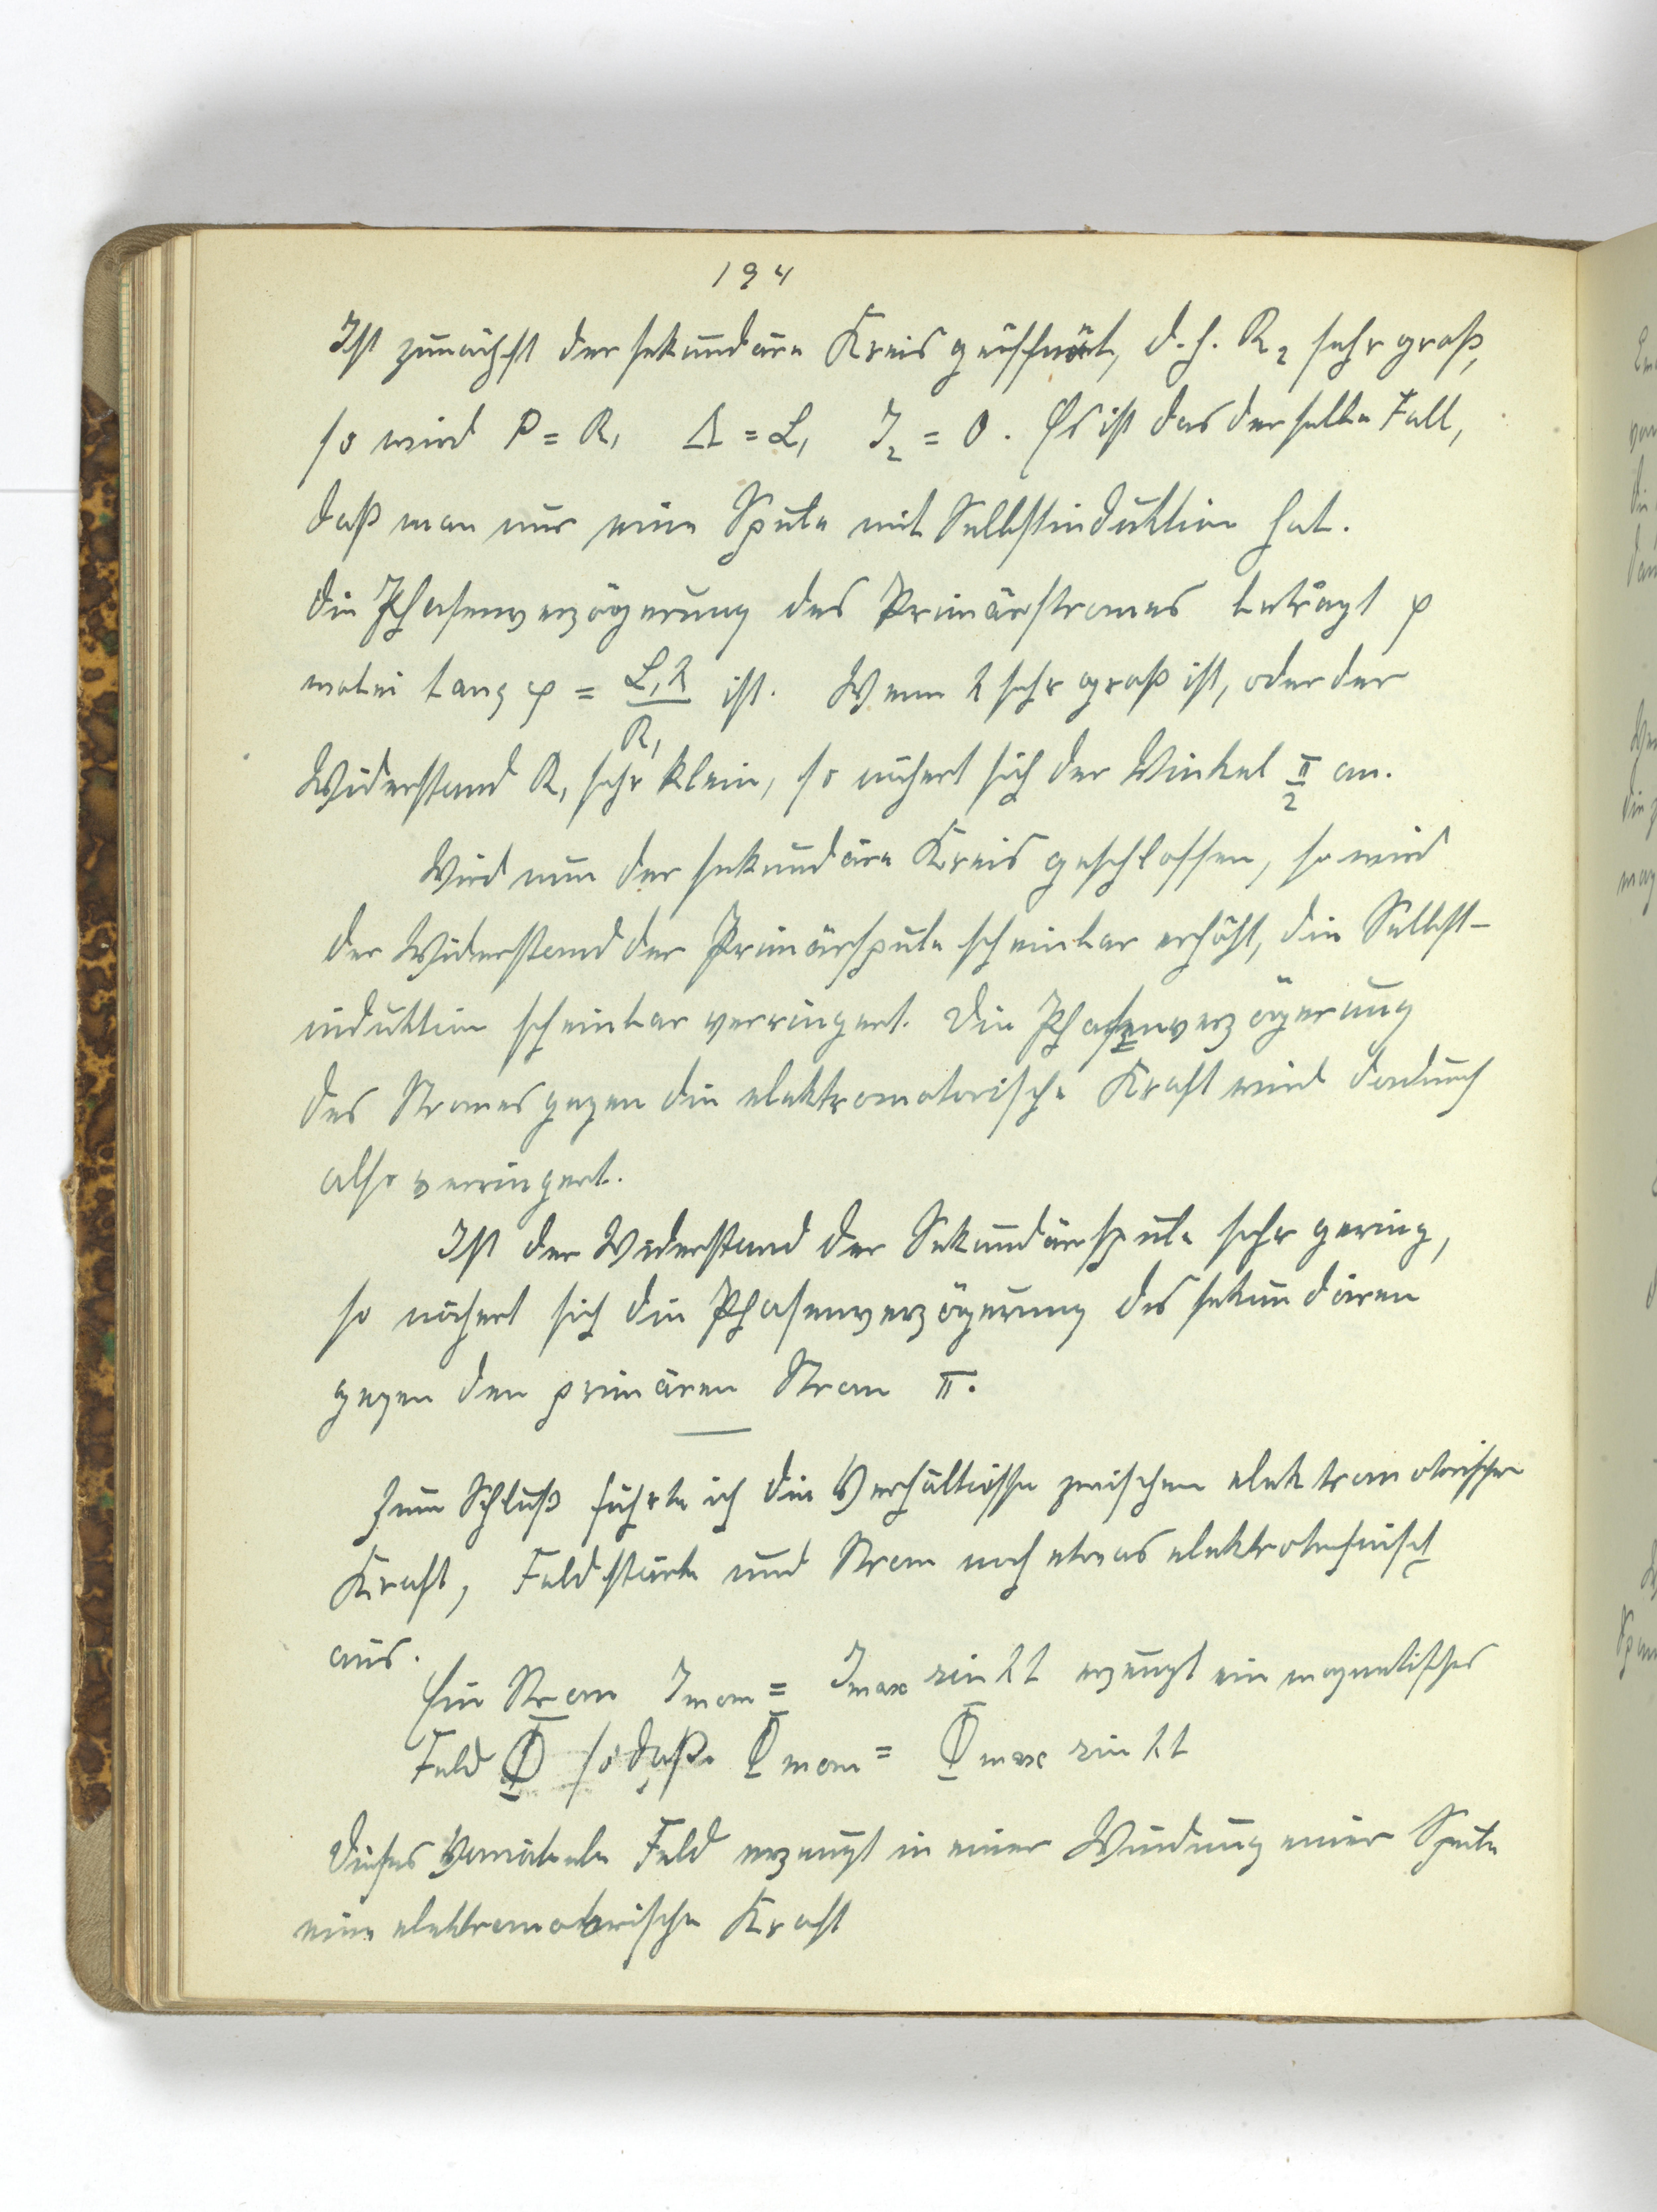 194
Ist zunächst der sekundäre Kreis geöffnet, d. h. R₂ sehr groß,
so wird P = R₁ Λ = L₁ J₂ = 0. Es ist das derselbe Fall,
daß man nur eine Spule mit Selbstinduktion hat.
Die Phasenverzögerung des Primärstromes beträgt φ
wobei tang φ = L₁λ/R₁ ist. Wenn λ sehr groß ist, oder der
Widerstand R₁ sehr klein, so nähert sich der Winkel π/2 an.
Wird nun der sekundäre Kreis geschlossen, so wird
der Widerstand der Primärspule scheinbar erhöht, die Selbst-
induktion scheinbar verringert. Die Phasenverzögerung
des Stromes gegen die elektromotorische Kraft wird dadurch
also verringert.
Ist der Widerstand der Sekundärspule sehr gering,
so nähert sich die Phasenverzögerung des sekundären
gegen den primären Strom π.
Zum Schluß führte ich die Verhältnisse zwischen elektromotorischer
Kraft, Feldstärke und Strom noch etwas elektrotechnisch
aus.
Ein Strom Jmom = Jmax sin λt erzeugt ein magnetisches
Feld Φ so daß Φmom = Φmax sin λt
Dieses Feld erzeugt in einer Windung einer Spule
eine elektromotorische Kraft